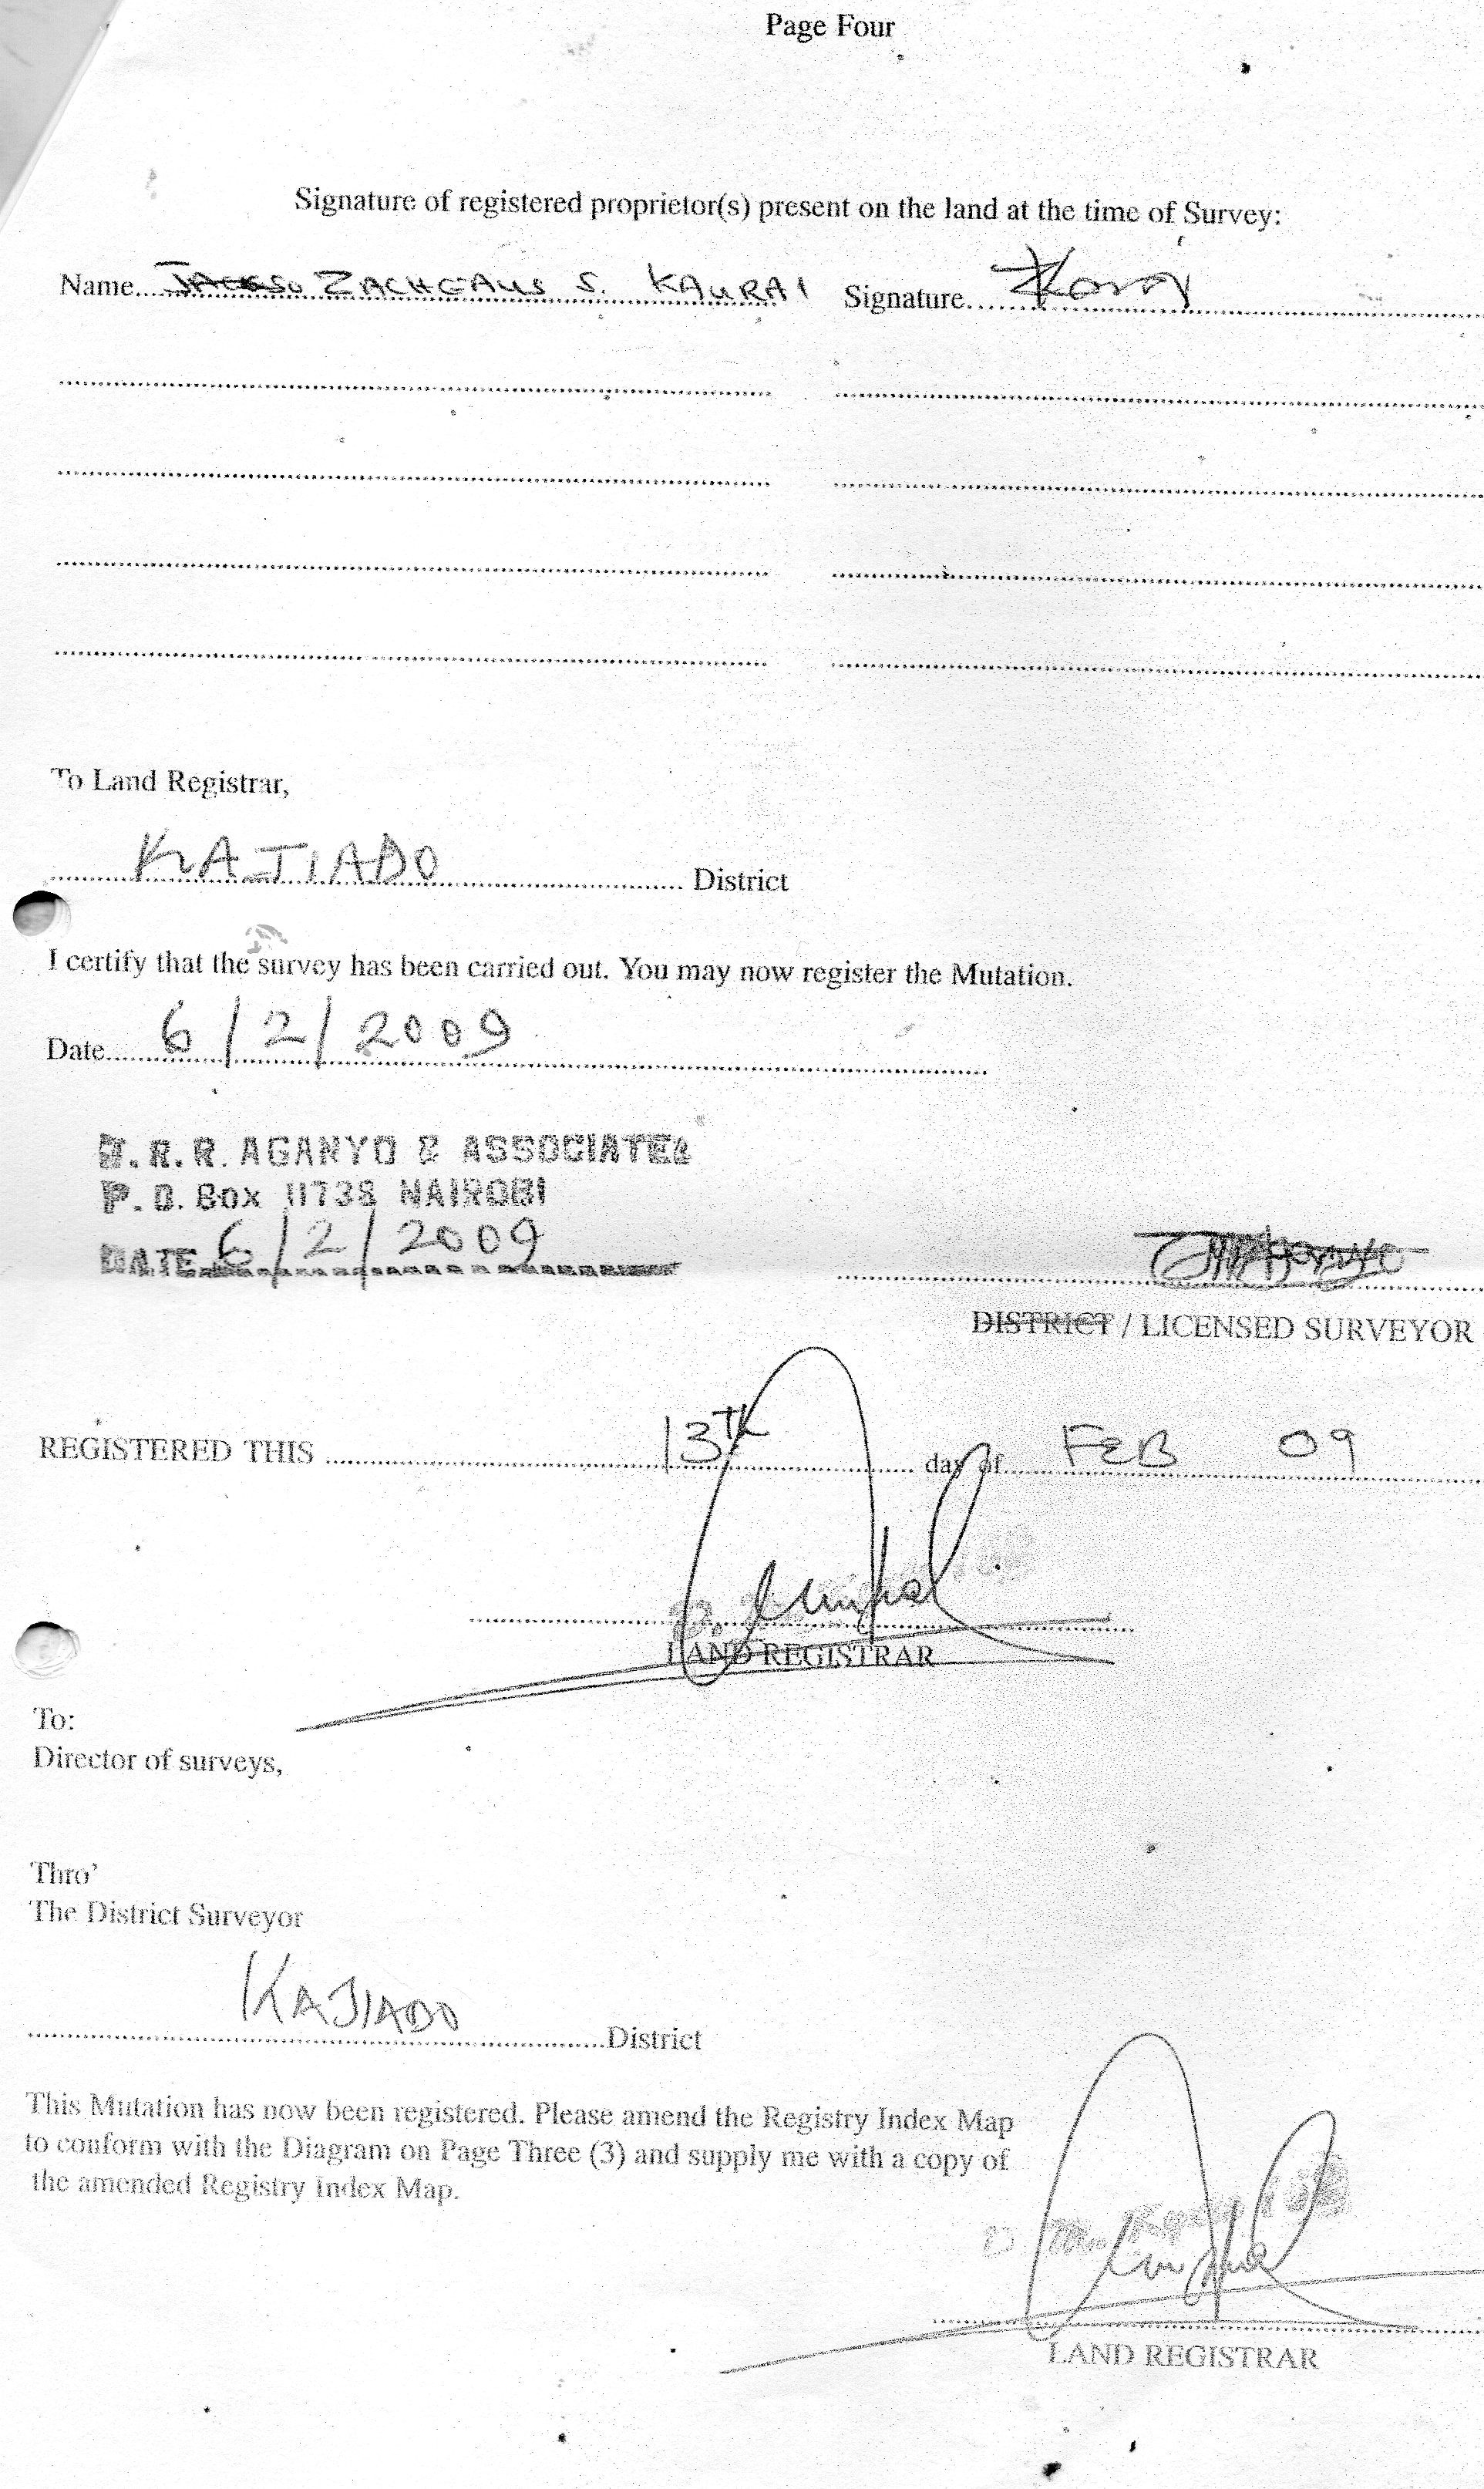 Page Four
Signature of registered proprietor(s) present on the land at the time of Survey:
Name ZACHEAUS S. KAURAI Signature
To Land Registrar,
KAJIADO District
I certify that the survey has been carried out. You may now register the Mutation.
Date 6/2/2009
R. R. AGANYO & ASSOCIATES
P. O. Box 11738 NAIROBI
DATE 6/2/2009
DISTRICT / LICENSED SURVEYOR
REGISTERED THIS 13TH day of FEB 09
LAND REGISTRAR
To:
Director of surveys,
Thro'
The District Surveyor
KAJIADO District
This Mutation has now been registered. Please amend the Registry Index Map
to conform with the Diagram on Page Three (3) and supply me with a copy of
the amended Registry Index Map.
LAND REGISTRAR